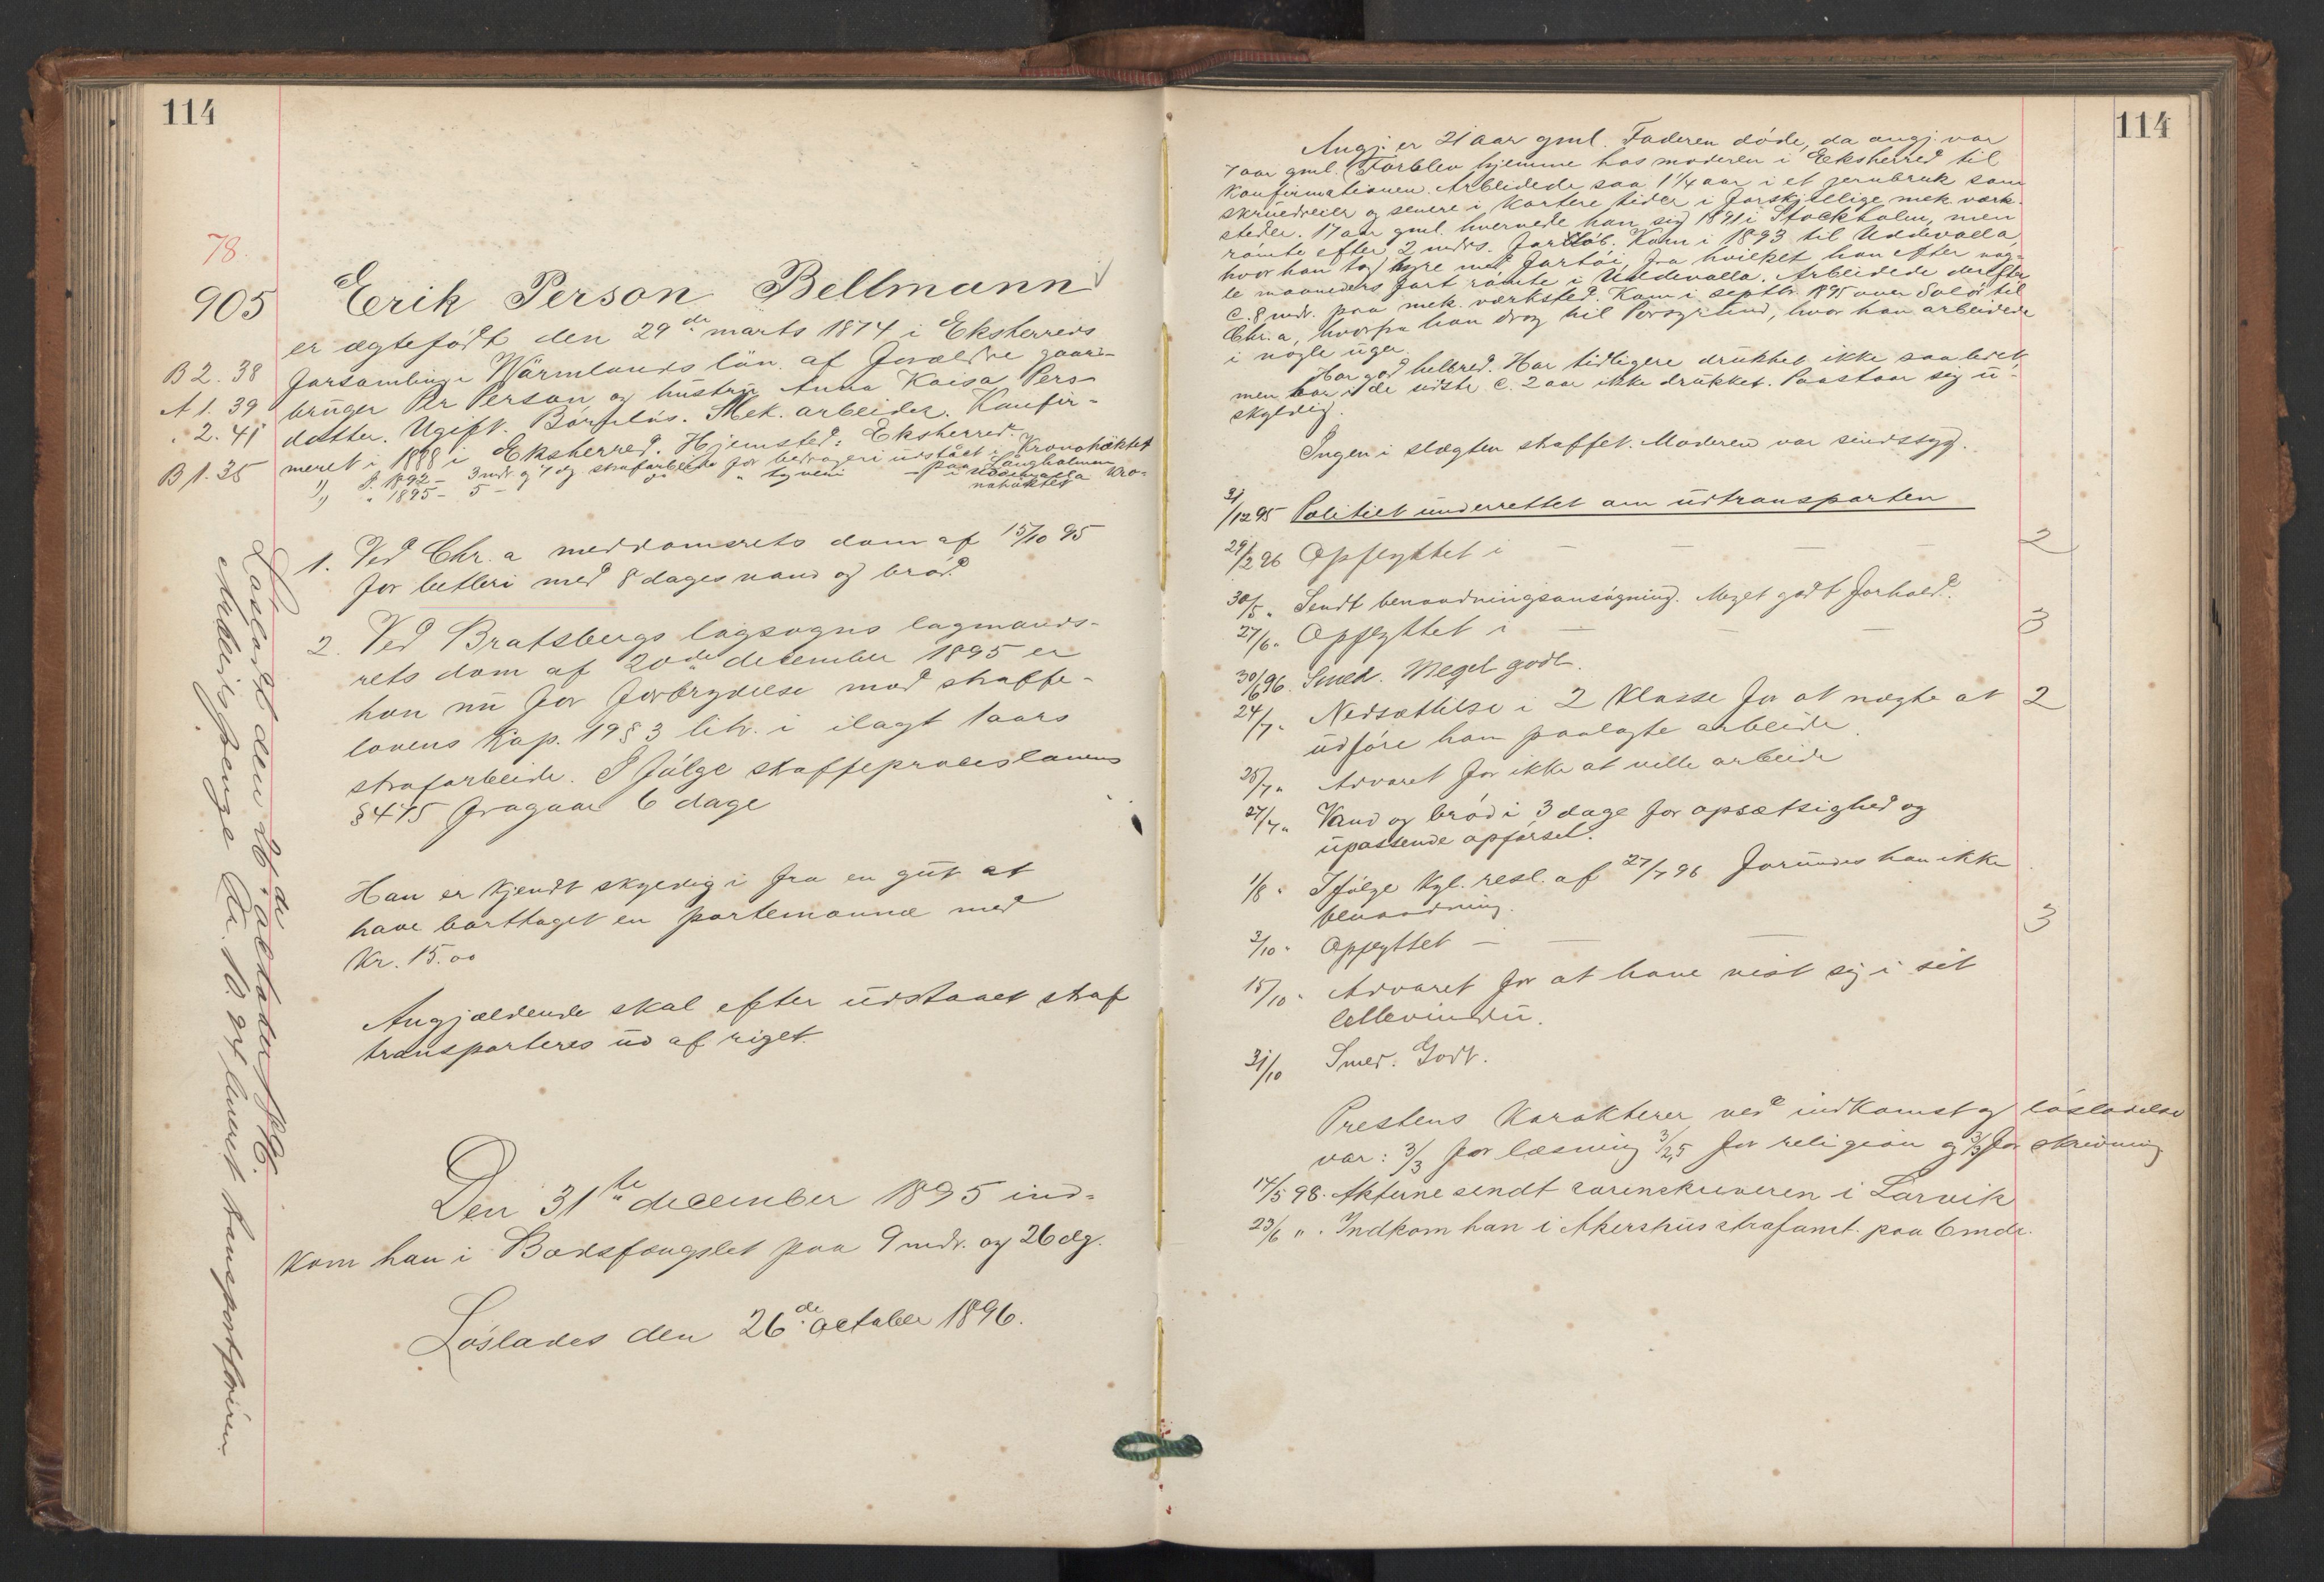 114
78.
905
Erik Person Bellmann
er ægtefødt den 29de marts 1874 i Eksherreds
B 2. 38
forsamling i Wärmlands län af forældre gaard-
A 1. 39
bruger Per Person og hustru Anna Kaisa Pers-
" 2. 41
datter. Ugift. Barnløs. Mek. arbeider. Konfir-
B 1. 35
meret i 1888 i Eksherred. Hjemsted: Eksherred.
1) I 1892 - 3 mdr. og 7 dg strafarbeide for bedrageri udstået i Kronohäktet
paa Långholmen
2) " 1895 - 5 - do " tyveri - i Uddevalla Kro-
nohäktet
1. Ved Chr.a meddomsrets dom af 15/10 95
for betleri med 8 dages vand og brød.
2. Ved Bratsbergs lagsogns lagmands-
rets dom af 20de december 1895 er
han nu for forbrydelse mod straffe-
lovens Kap. 19 § 3 litr. i ilagt 1 aars
strafarbeide. I følge straffeproceslovens
§ 475 fragaar 6 dage
Han er kjendt skyldig i fra en gut at
have borttaget en portemonnæ med
Kr. 15.00
Angjældende skal efter udstaaet straf
transporteres ud af riget.
Den 31te december 1895 ind-
kom han i Bodsfængslet paa 9 mdr. og 26 dg.
Løslades den 26de october 1896.
Løsladt den 26de oktober 96.
Arbeidspenge Kr. 10. leveret transportføreren
114
Angj. er 21 aar gml. Faderen døde, da angj. var
7 aar gml. Forblev hjemme hos moderen i Eksherred til
konfirmationen. Arbeidede saa 1 1/4 aar i et jernbruk som
skruedreier og senere i kortere tider i forskjellige mek. værk-
steder. 17 aar gml. hvervede han sig 1891 i Stockholm, men
rømte efter 2 mdrs. forløb. Kom i 1893 til Uddevalla,
hvor han tog hyre med fartøi, fra hvilket han efter nog-
le maaneders fart rømte i Uddevalla. Arbeidede derefter
c. 8 mdr. paa mek. værksted. Kom i septbr. 1895 over Solør til
Chr.a, hvorfra han drog til Porsgrund, hvor han arbeidede
i nogle uger.
Har god helbred. Har tidligere drukket ikke saa lidet,
men har i de sidste c. 2 aar ikke drukket. Paastaar sig u-
skyldig.
Ingen i slægten straffet. Moderen var sindssyg.
31/12 95 Politiet underrettet om udtransporten
29/2 96 Opflyttet i - - - 2
30/5 " Sendt benaadningsansøgning. Meget godt forhold.
27/6 " Opflyttet i - - - 3
30/6 96. Smed. Meget godt.
24/7 " Nedsættelse i 2 klasse for at nægte at 2
udføre ham paalagte arbeide.
25/7 " Advaret for ikke at ville arbeide
27/7 " Vand og brød i 3 dage for opsætsighed og
upassende opførsel.
1/8 " Ifølge Kgl. resl. af 27/7 96 forundes han ikke
benaadning.
3/10 " Opflyttet - - - 3
15/10 " Advaret for at have vist sig i sit
cellevindu.
31/10 Smed. Godt.
Prestens Karakterer ved indkomst og løsladelse
var: 3/3 for læsning 3/2,5 for religion og 3/3 for skrivning
17/5 98. Akterne sendt sorenskriveren i Larvik
23/6 ". Indkom han i Akershus strafanst. paa 6 mdr.